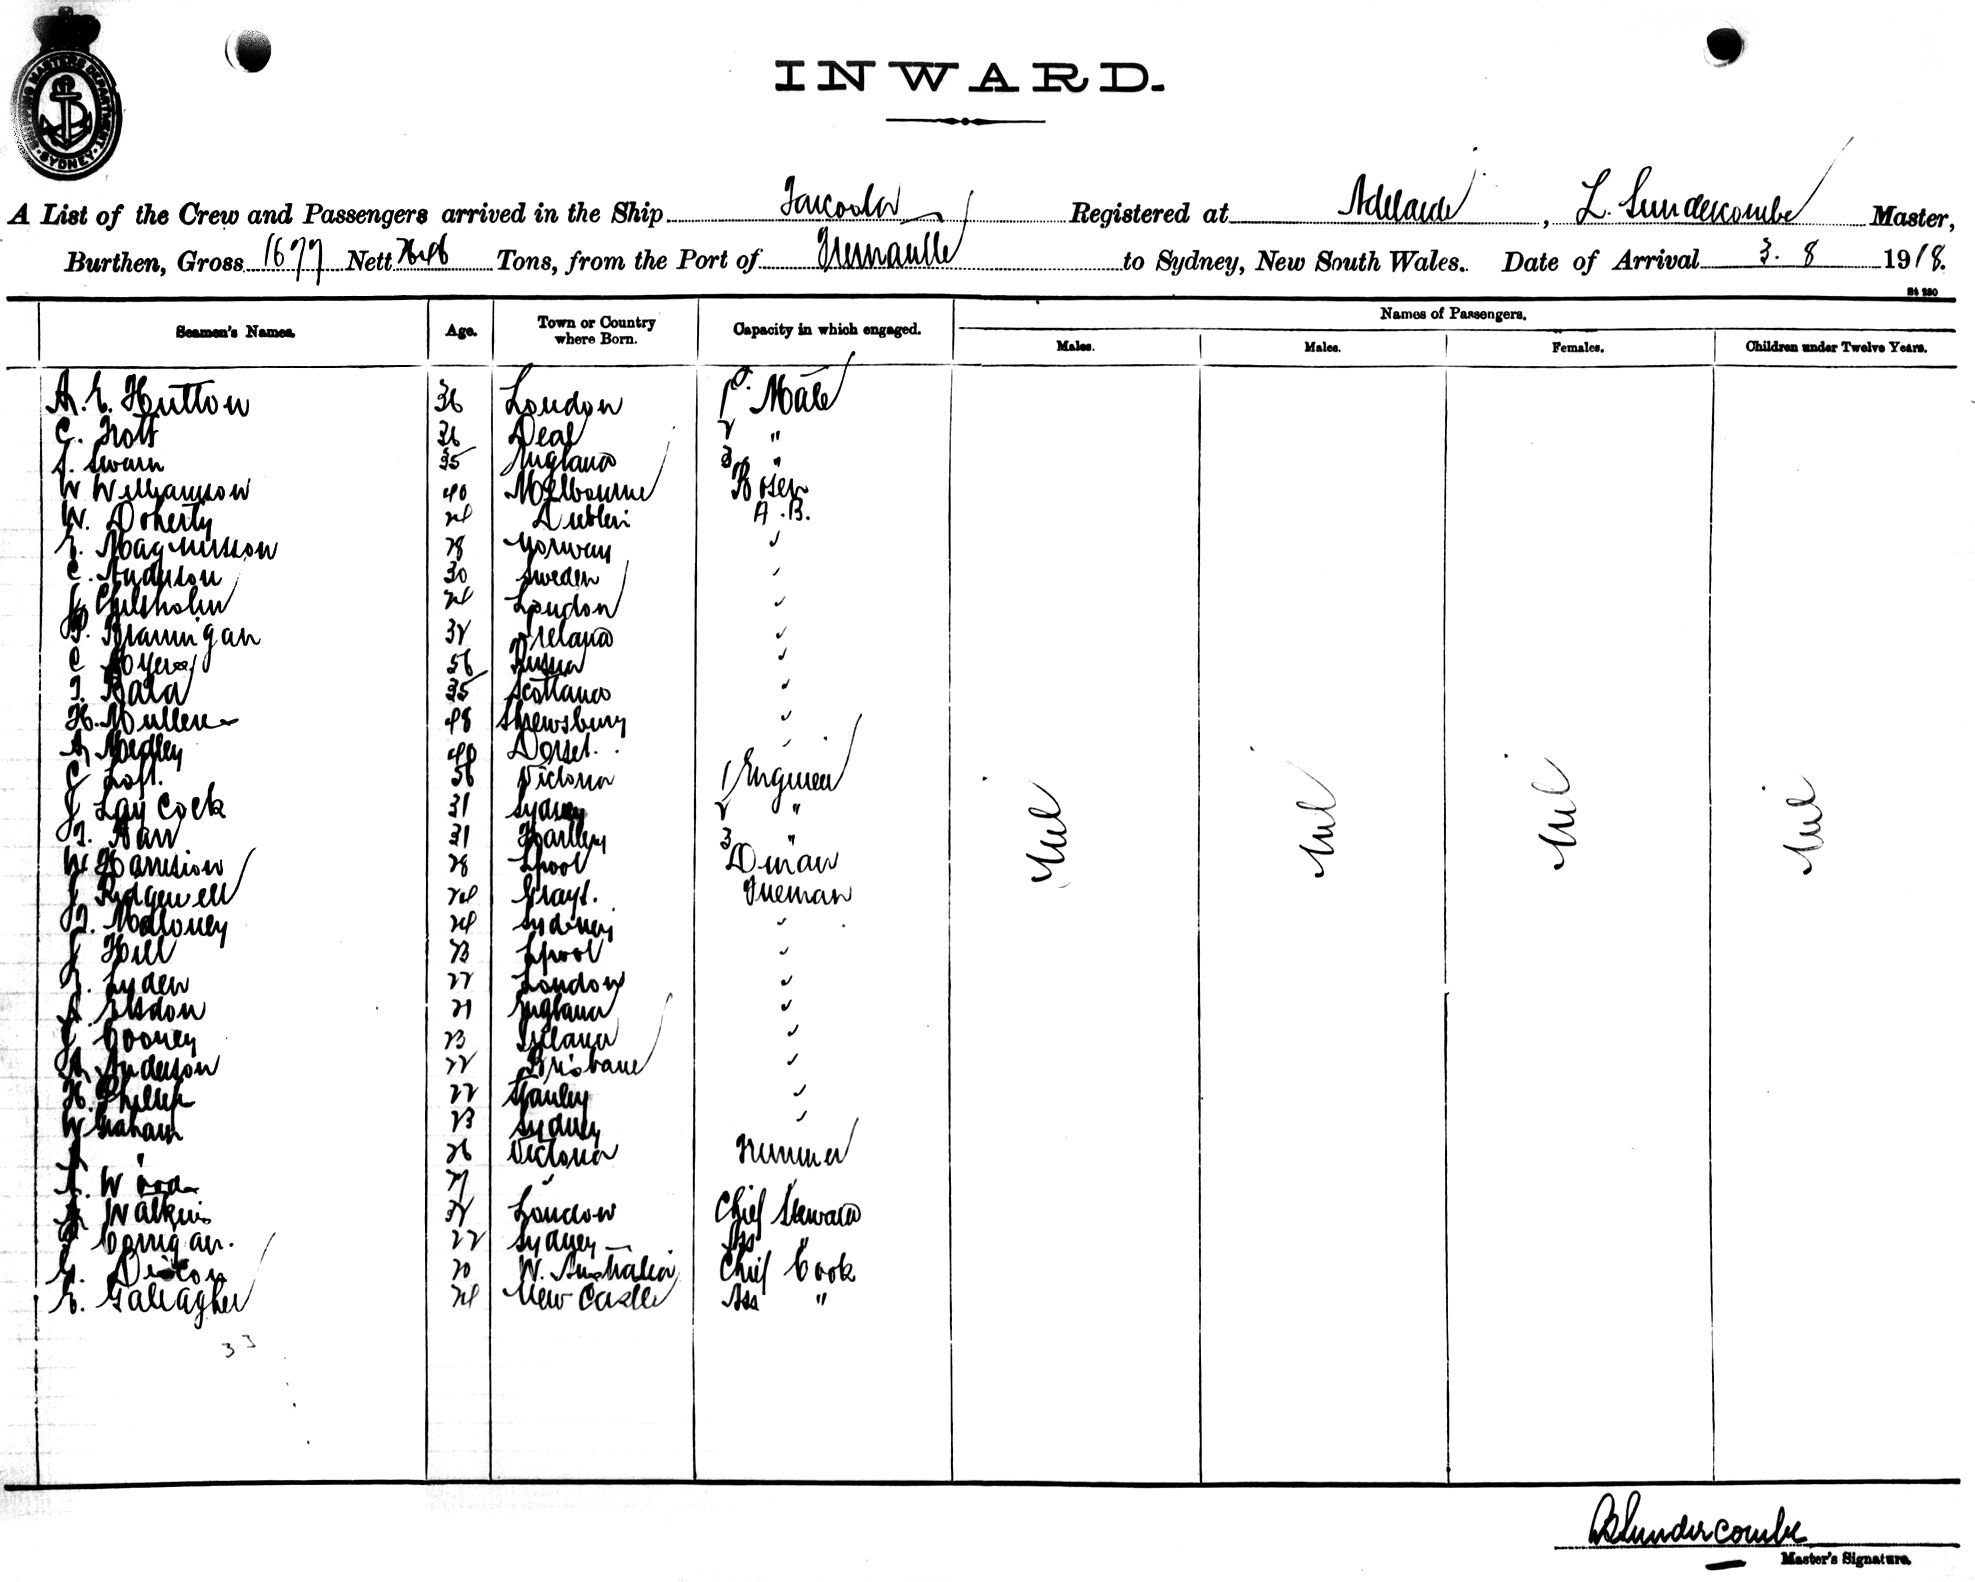 SHIPPING MASTERS DEPARTMENT
SYDNEY
INWARD.
A List of the Crew and Passengers arrived in the Ship Registered at Adelaide, L. Sundercombe Master,
Burthen, Gross 1677 Nett Tons, from the Port of Fremantle to Sydney, New South Wales. Date of Arrival 3. 8 1918.
St 280
Seamen's Names. Age. Town or Country where Born. Capacity in which engaged. Names of Passengers.
Males. Males. Females. Children under Twelve Years.
A. E. Hutton 36 London 1o. Mate
C. Trott 36 Deal 2 "
S. Swain 35 England 3 "
W Williamson 40 Melbourne Bosen
W. Doherty 24 Dublin A.B.
E. Magnusson 28 Norway "
C. Anderson 30 Sweden "
J Chilsholm 24 London "
P. Brannigan 32 Ireland "
C Myers 56 Russia "
35 Scotland "
H. Muller 48 Shrewsbury "
A Medley 40 Dorset. "
C Loft. 56 Victoria 1 Engineer
J Laycock 31 Sydney 2 "
31 Hartley 3 "
W Harrision 28 Lpool Dman
J Ridgewell 24 Grays. Fireman
T. Molloney 24 Sydney "
J Hill 23 Lpool "
Lyden 22 London "
Elsdon 21 England "
J Cooney 23 Ireland "
A Anderson 22 Brisbane "
H. Phillip 22 Stanley "
W Graham 23 Sydney "
" 26 Victoria Trimmer
A. Wood 21 " "
A Watkins 32 London Chief Steward
J Corrigan. 22 Sydney Ass "
G. Dixon 20 W. Australia Chief Cook
E. Gallagher 24 New Castle Ass "
Nil Nil Nil Nil
33
Sundercombe
Master's Signature.